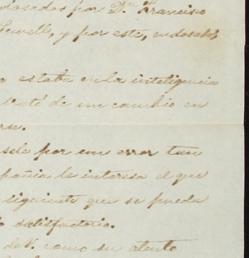 dosadas por Dn. Francisco
Sewell, y por este, endosado,
estate en la inteligencia
de un cambio en
rse.
sele por em error tan
pañia le interesa el que
siguiente que se pueda
satisfactoria.
de V. como su atento